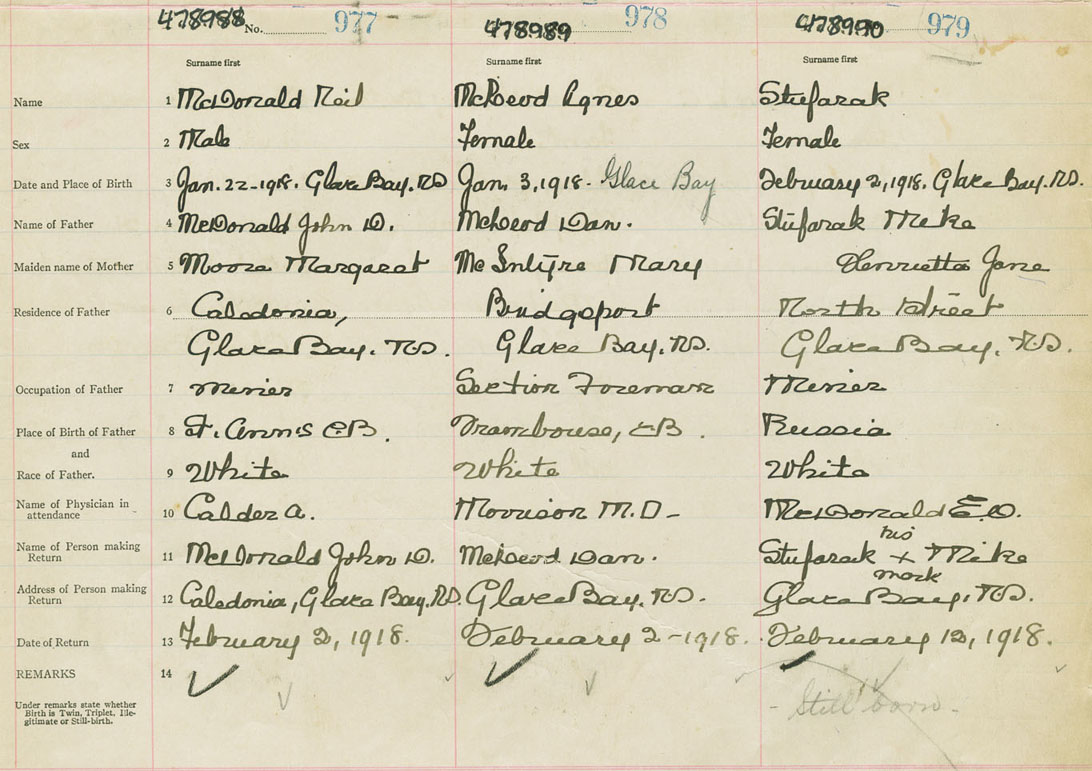 478988 No. 977 478989 978 478990 979
Surname first Surname first Surname first
Name 1 McDonald Neil McLeod Agnes Stufarak
Sex 2 Male Female Female
Date and Place of Birth 3 Jan. 22-1918. Glace Bay. Jan. 3, 1918. Glace Bay February 2, 1918. Glace Bay.
Name of Father 4 McDonald John D. McLeod Dan. Stufarak Mike
Maiden name of Mother 5 Moore Margaret McIntyre Mary Henrietta Jane
Residence of Father 6 Caledonia, Bridgeport North Street
Glace Bay. Glace Bay. Glace Bay.
Occupation of Father 7 Miner Section Foreman Miner
Place of Birth of Father 8 St. Anns C.B. Framboise, C.B. Russia
and
Race of Father. 9 White White White
Name of Physician in
attendance 10 Calder A. Morrison M.D- McDonald E.O.
his
Name of Person making
Return 11 McDonald John D. McLeod Dan. Stufarak x Mike
mark
Address of Person making
Return 12 Caledonia, Glace Bay. Glace Bay. Glace Bay.
Date of Return 13 February 2, 1918. February 2-1918. February 12, 1918.
REMARKS 14
Under remarks state whether
Birth is Twin, Triplet, Ille-
gitimate or Still-birth.
- Still born -